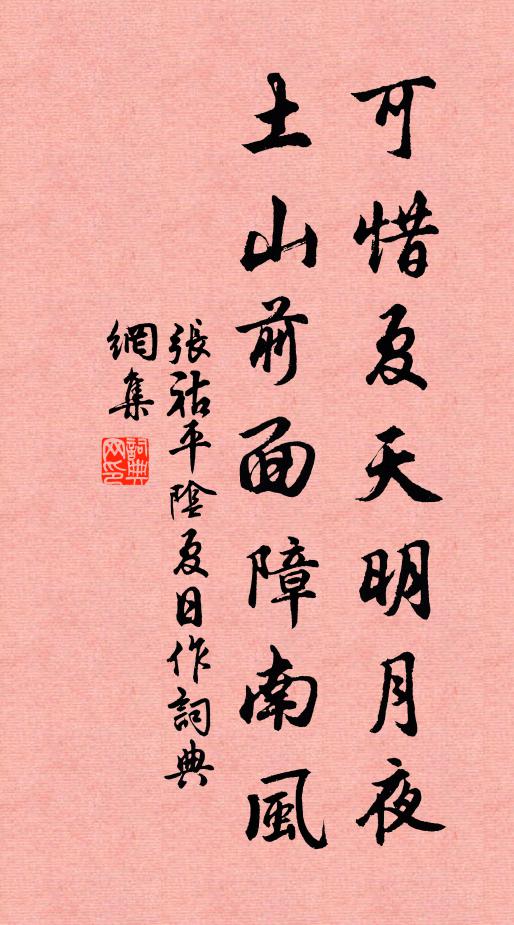 可惜夏天明月夜
土山前面障南風
張祜平陰夏日作詞典
網集
詞典網印